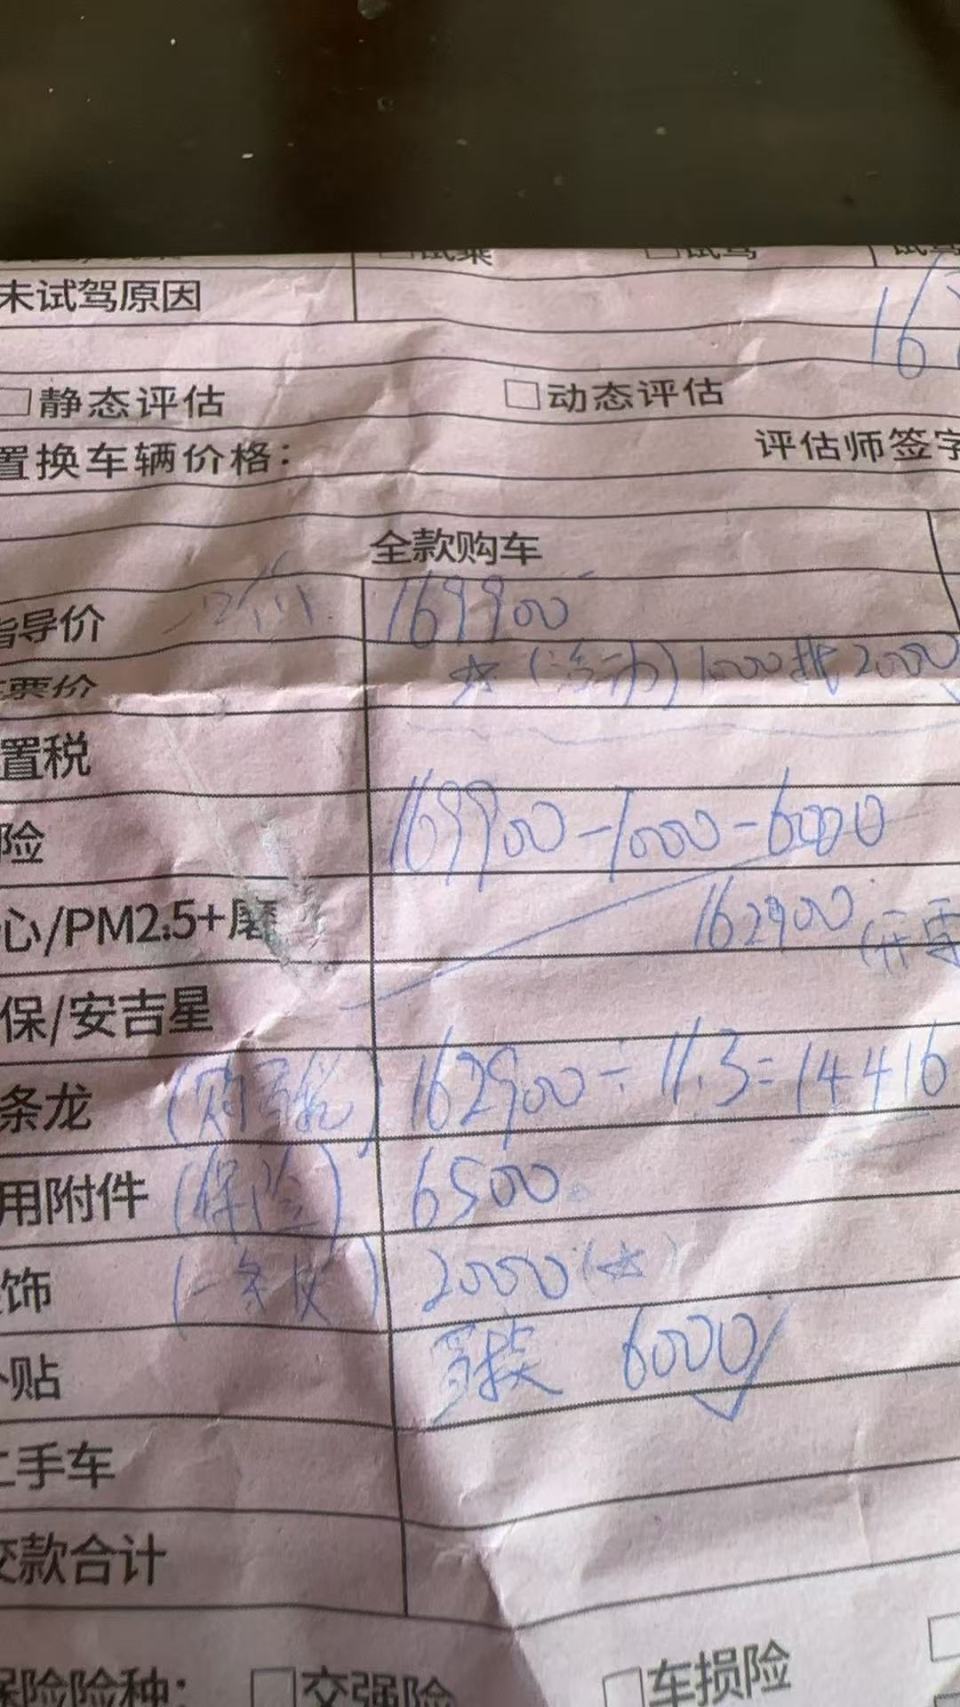 未试驾原因
□静态评估 □动态评估
置换车辆价格： 评估师签字
全款购车
指导价 169900
票价 (活动) 1000抵2000
置税
险 169900-1000-6000
心/PM2.5+磨 162900 (开票
保/安吉星
条龙 (购置税) 162900÷11.3=14416
用附件 (保险) 6500
饰 (一条龙) 2000
贴 置换 6000
二手车
交款合计
保险险种： □交强险 □车损险